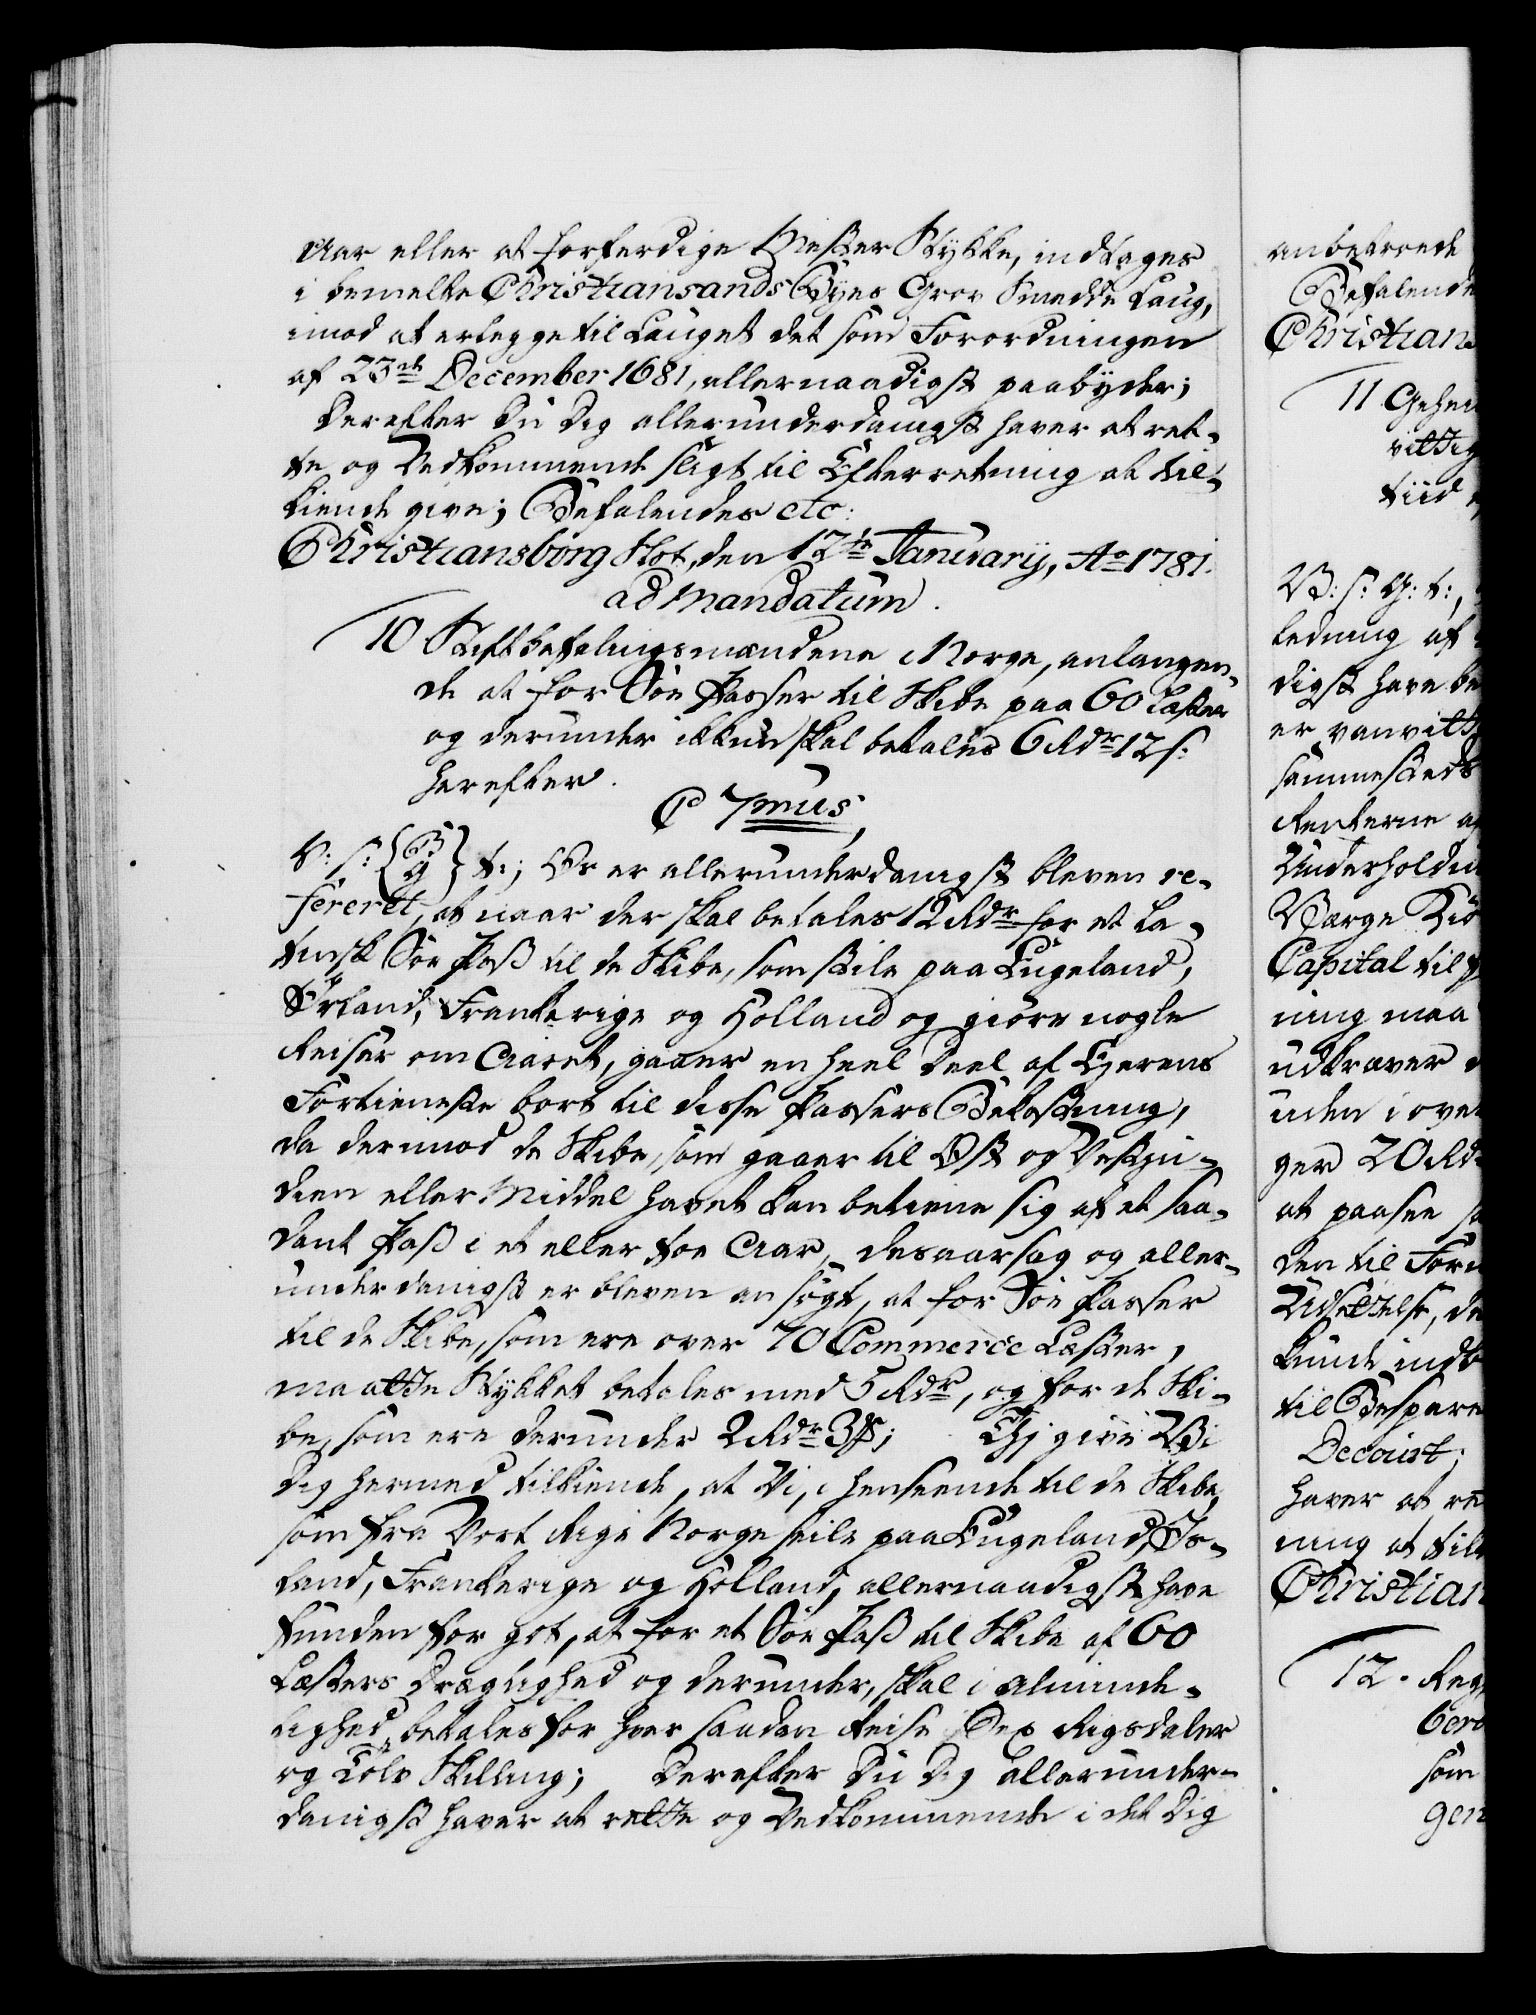 Aar eller at forferdige Mester Stykke, indtages
i bemelte Christiansands Byes Grov Smedde Laug,
imod at erlegge til Lauget det som Forordningen
af 23de December 1681, allernaadigst paabyder;
Derefter Du Dig allerunderdanigst haver at ret-
te og Vedkommende sligt til Efterretning at til-
kiende give; Befalendes etc:
Christiansborg Slot, den 12te Januarij, Ao 1781.
ad Mandatum.
10 Stiftbefalingsmændene i Norge, anlangen-
de at for Søe Passer til Skibe paa 60 Læster
og derunder ikkun skal betales 6 Rdr 12 s:
herefter.
C 7mus,
V: s: {B G} t:, Os er allerunderdanigst bleven re-
fereret, at naar der skal betales 12 Rdr for et La-
tinsk Søe Pass til de Skibe, som seile paa Engeland,
Irland, Frankerige og Holland og giøre nogle
Reiser om Aaret, gaaer en heel Deel af Eyerens
Fortieneste bort til disse Passers Bekostning,
da derimod de Skibe, som gaaer til Ost og Vestin-
dien eller Middel havet kan betiene sig af et saa-
dant Pass i et eller toe Aar, desaarsag og aller-
underdanigst er bleven ansøgt, at for Søe Passer
til de Skibe, som ere over 70 Commerce Læster,
maatte Stykket betales med 5 Rdr, og for de Ski-
be, som ere derunder 2 Rdr 3 ; Thi give Vi
Dig hermed tilkiende, at Vi, i henseende til de Skibe,
som fra Vort Rige Norge seile paa Engeland, Ir-
land, Frankerige og Holland, allernaadigst have
funden for got, at for et Søe Pass til Skibe af 60
Læsters Drægtighed og derunder, skal i Alminde-
lighed betales for hver saadan Reise Sex Rigsdaler
og Tolv Skilling; Derefter Du Dig allerunder-
danigst haver at rette og Vedkommende i det Dig
anbetroede
Befalende
Christians
11 Gehei
vittig
tiid
V: s: G: t:,
ledning af
digst have be
er vanvitt
sammesteds
Renterne a
Underholdn
Værge
Capital til
ning maa
udkræver
uden i over
ger 20 Rd
at paasee
den til
Udsættelse, de
kunde indk
til Bespare
Decourt;
haver at re
ning at tilk
Christian
12. Reg
bero
som
gen